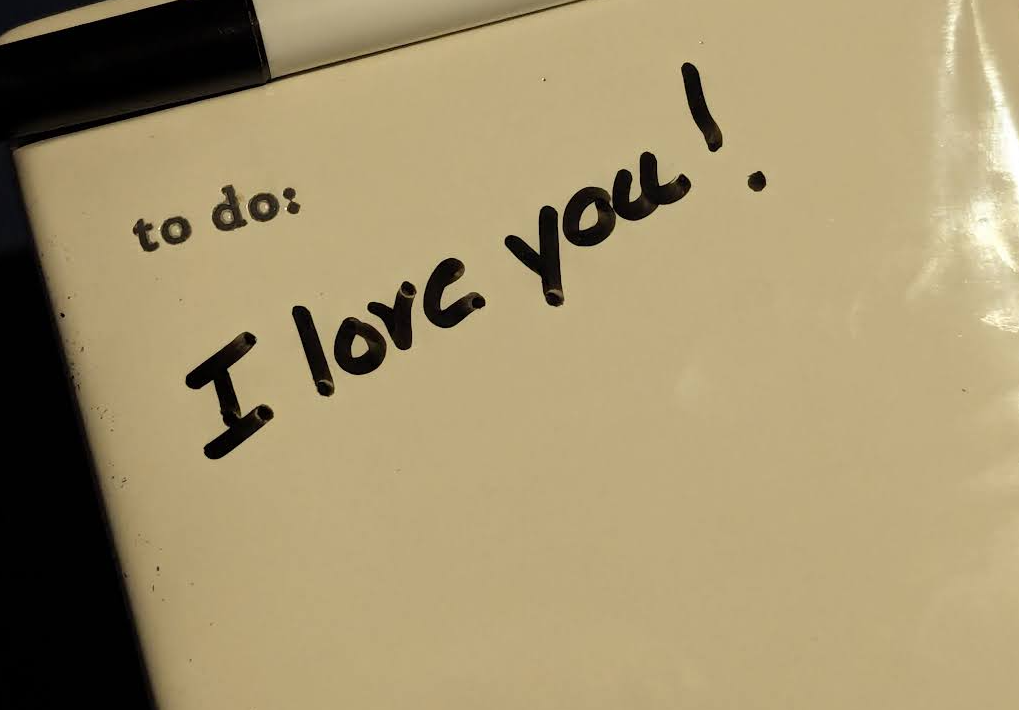 to do:
I love you!